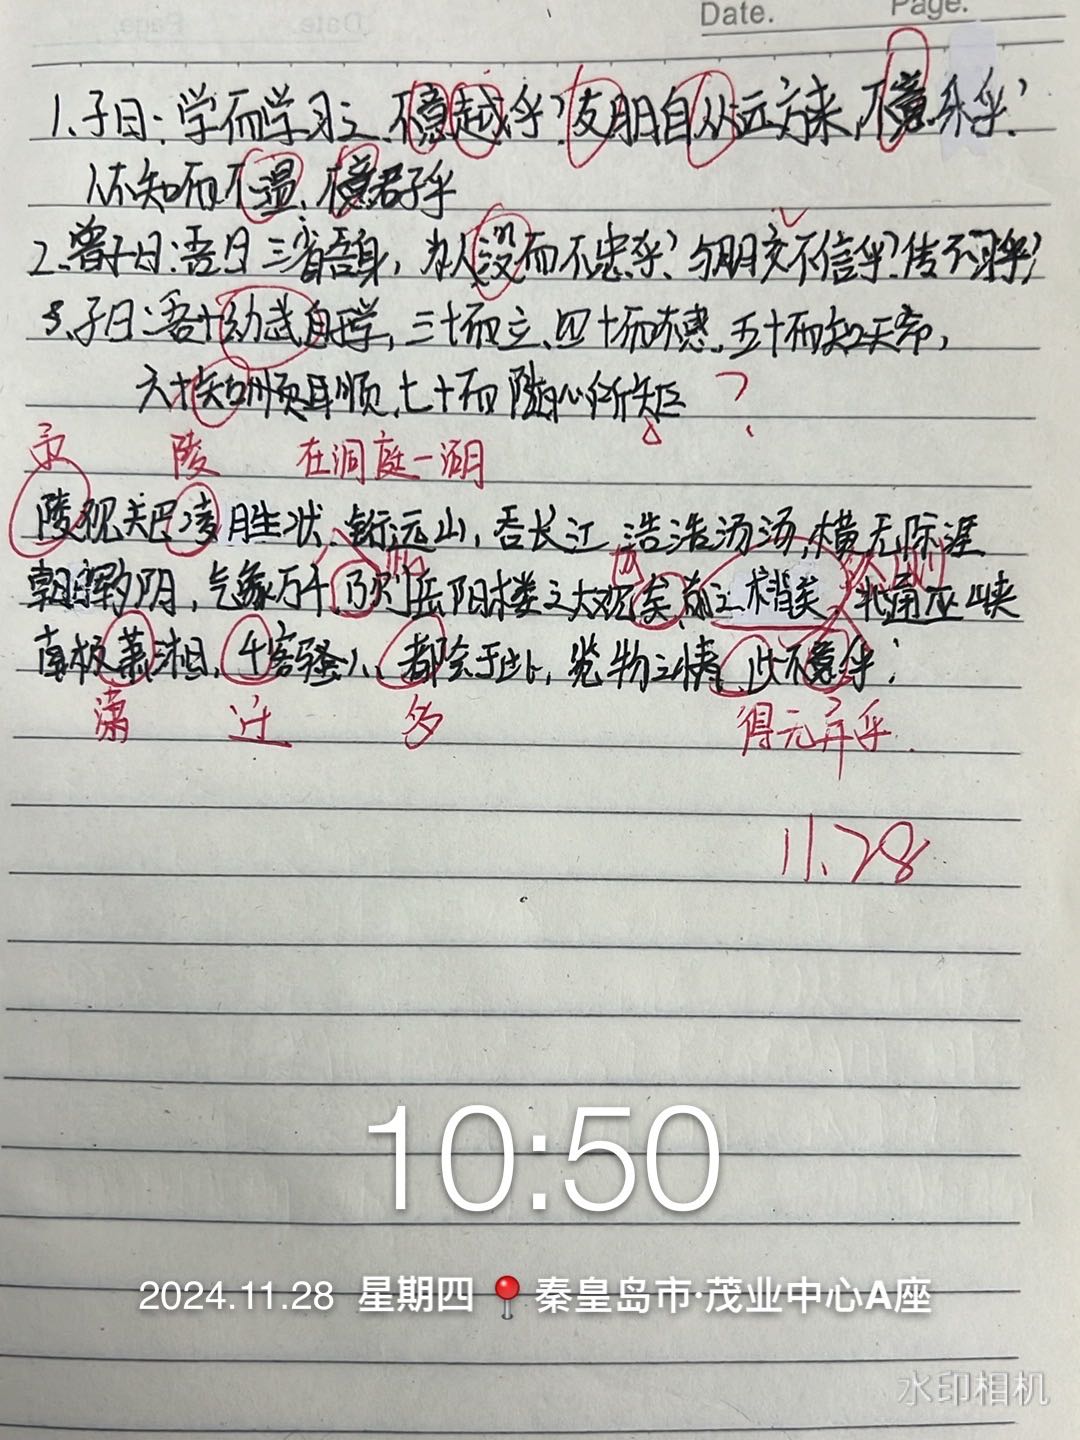 Date. Page.
1.子曰:学而学习之,不意越乎?友朋自从远方来,不意乐乎?
人不知而不温,不意君子乎
2.曾子曰:吾日三省吾身,为人没而不忠乎?与朋交不信乎?传不习乎?
3.子曰:吾十幼武自开学,三十而立,四十而不惑,五十而知天命,
六十知耳顺,七十而随心所矩 ?
予 陵 在洞庭一湖
陵观夫巴凌胜状,衔远山,吞长江,浩浩汤汤,横无际涯
朝晖夕阴,气象万千,乃则岳阳楼之大观矣,前之 矣,北通巫峡
南极萧湘,千客骚人,都会于此,览物之情,此不意乎?
潇 迁 多 得无异乎
11.28
10:50
2024.11.28 星期四 秦皇岛市·茂业中心A座
水印相机